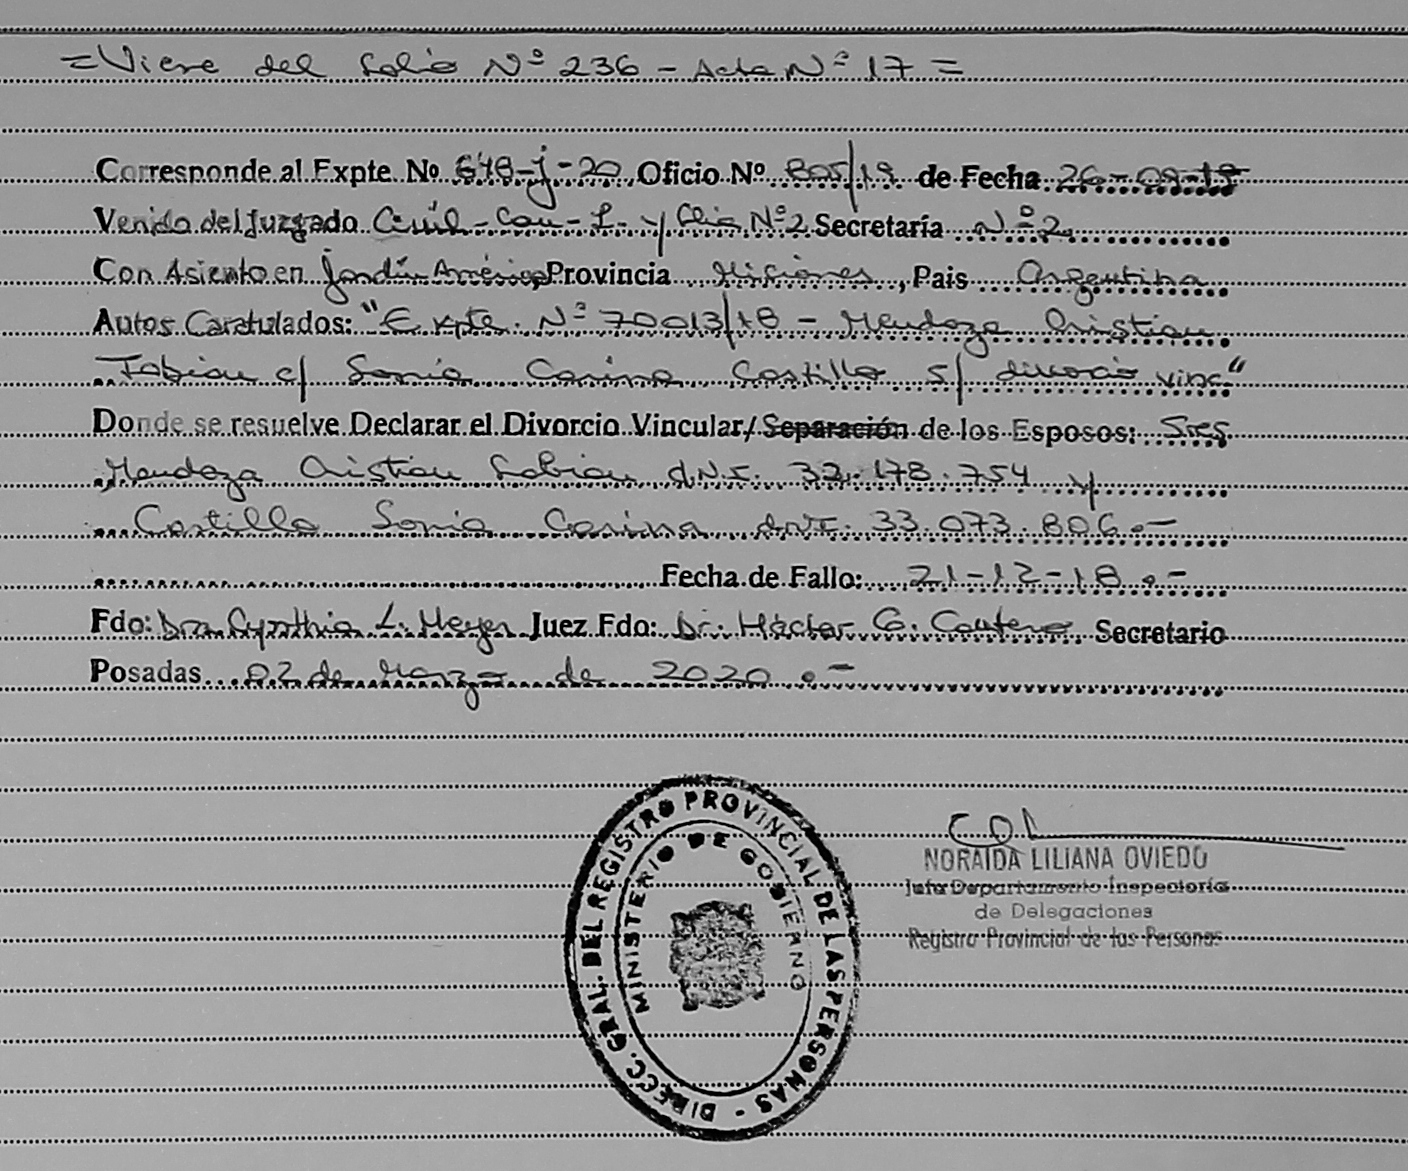 =Viene del folio Nº 236 - Acta Nº 17 =
Corresponde al Expte. Nº 648-J-20 Oficio Nº 805/19 de Fecha 26-09-19
Venido del Juzgado Civil-Com-L- y Flia Nº2 Secretaría Nº 2
Con Asiento en Jardín América, Provincia Misiones, Pais Argentina
Autos Caratulados: "Expte. Nº 70013/18 - Mendoza Cristian
Fabian c/ Sonia Carina Castillo s/ divorcio vinc"
Donde se resuelve Declarar el Divorcio Vincular/ Separación de los Esposos: Sres
Mendoza Cristian Fabian d.N.I. 32.178.754 y
Castillo Sonia Carina dNI. 33.073.806.-
Fecha de Fallo: 21-12-18.-
Fdo: Dra Cynthia L. Meyer Juez Fdo: Dr. Héctor G. Secretario
Posadas 02 de Marzo de 2020.-
DIRECC. GRAL. DEL REGISTRO PROVINCIAL DE LAS PERSONAS -
MINISTERIO DE GOBIERNO
NORAIDA LILIANA OVIEDO
Jefa Departamento Inspectoría
de Delegaciones
Registro Provincial de las Personas